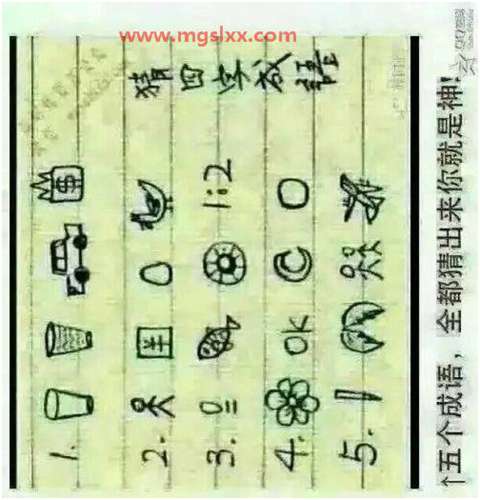 www.mgslxx.com
猜四字成語
1. $
2.
3. 1:2
4. OK C
5.
↑五个成语，全都猜出来你就是神!